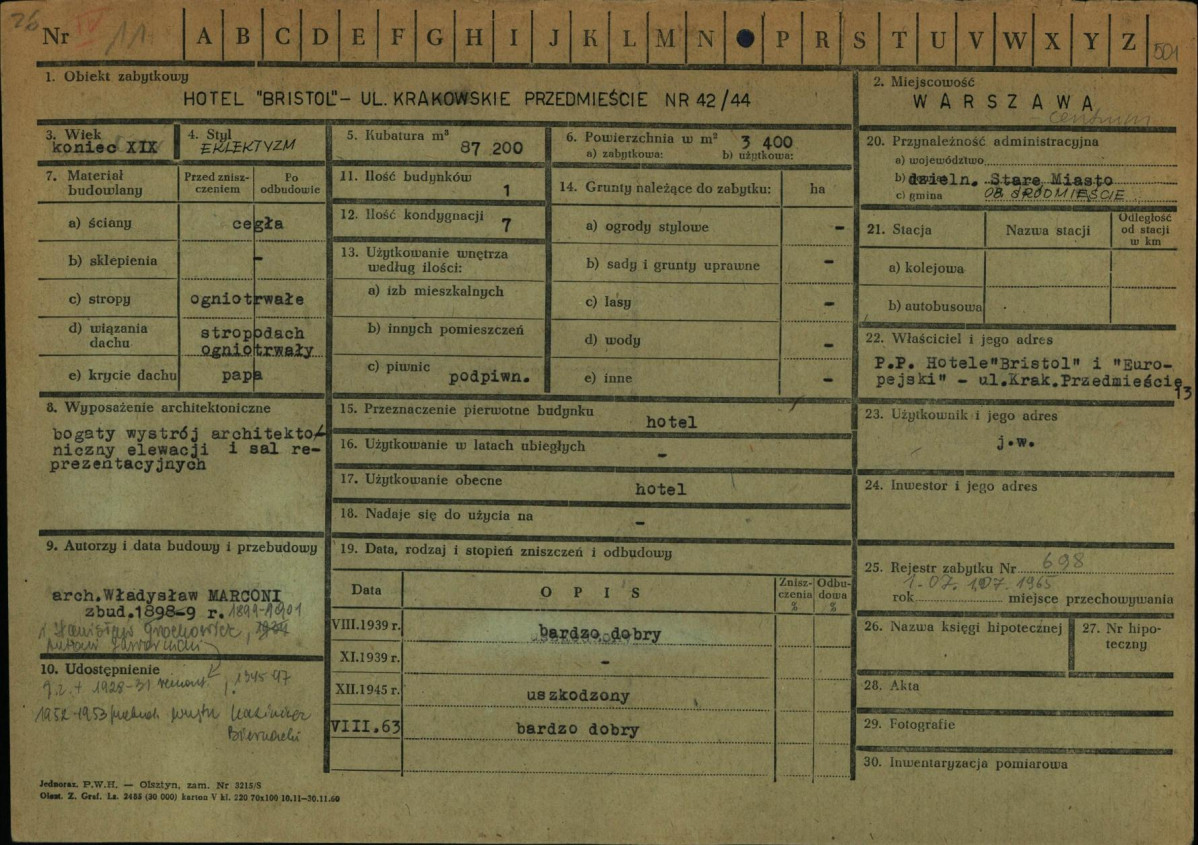 26
Nr IV 11 A B C D E F G H I J K L M N P R S T U V W X Y Z 501
1. Obiekt zabytkowy
HOTEL "BRISTOL" - UL. KRAKOWSKIE PRZEDMIEŚCIE NR 42/44
2. Miejscowość
WARSZAWA
centrum
3. Wiek
koniec XIX
4. Styl
EKLEKTYZM
5. Kubatura m³
87 200
6. Powierzchnia w m² 3 400
a) zabytkowa: b) użytkowa:
7. Materiał budowlany
Przed zniszczeniem
Po odbudowie
a) ściany cegła
b) sklepienia -
c) stropy ogniotrwałe
d) wiązania dachu
stropodach
ogniotrwały
e) krycie dachu papa
8. Wyposażenie architektoniczne
bogaty wystrój architekto-
niczny elewacji i sal re-
prezentacyjnych
9. Autorzy i data budowy i przebudowy
arch.Władysław MARCONI
zbud.1898-9 r. 1899-1901
i Stanisław Grochowicz,
10. Udostępnienie
1928-31 remont, 1945-47
1952-1953 Kazimierz
Biernacki
11. Ilość budynków
1
12. Ilość kondygnacji
7
13. Użytkowanie wnętrza
według ilości:
a) izb mieszkalnych
b) innych pomieszczeń
c) piwnic
podpiwn.
14. Grunty należące do zabytku: ha
a) ogrody stylowe -
b) sady i grunty uprawne -
c) lasy -
d) wody -
e) inne -
15. Przeznaczenie pierwotne budynku
hotel
16. Użytkowanie w latach ubiegłych
-
17. Użytkowanie obecne
hotel
18. Nadaje się do użycia na
-
19. Data, rodzaj i stopień zniszczeń i odbudowy
Data OPIS Zniszczenia % Odbudowa %
VIII.1939 r. bardzo dobry
XI.1939 r. -
XII.1945 r. uszkodzony
VIII.63 bardzo dobry
20. Przynależność administracyjna
a) województwo
b) dzieln. Stare Miasto
c) gmina OB ŚRÓDMIEŚCIE
21. Stacja Nazwa stacji Odległość od stacji w km
a) kolejowa
b) autobusowa
22. Właściciel i jego adres
P.P. Hotele"Bristol" i "Euro-
pejski" - ul.Krak.Przedmieście
13
23. Użytkownik i jego adres
j.w.
24. Inwestor i jego adres
25. Rejestr zabytku Nr 698
1.07. 1965
rok miejsce przechowywania
26. Nazwa księgi hipotecznej
27. Nr hipoteczny
28. Akta
29. Fotografie
30. Inwentaryzacja pomiarowa
Jednoraz. P.W.H. — Olsztyn, zam. Nr 3215/S
Olszt. Z. Graf. Lz. 2485 (30 000) karton V kl. 220 70x100 10.11—30.11.60